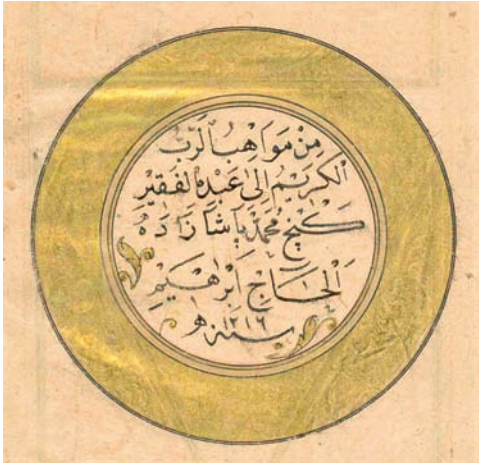 مِنْ مَوَاهِبِ الرَّبِّ
الْكَرِيمِ اِلٰى عَبْدِهِ الفَقِيرِ
كَنْج مُحَمَّد پَاشَا زَادَه
اَلْحَاجّ اِبْرٰهِيمْ
سنه ١٢١٦